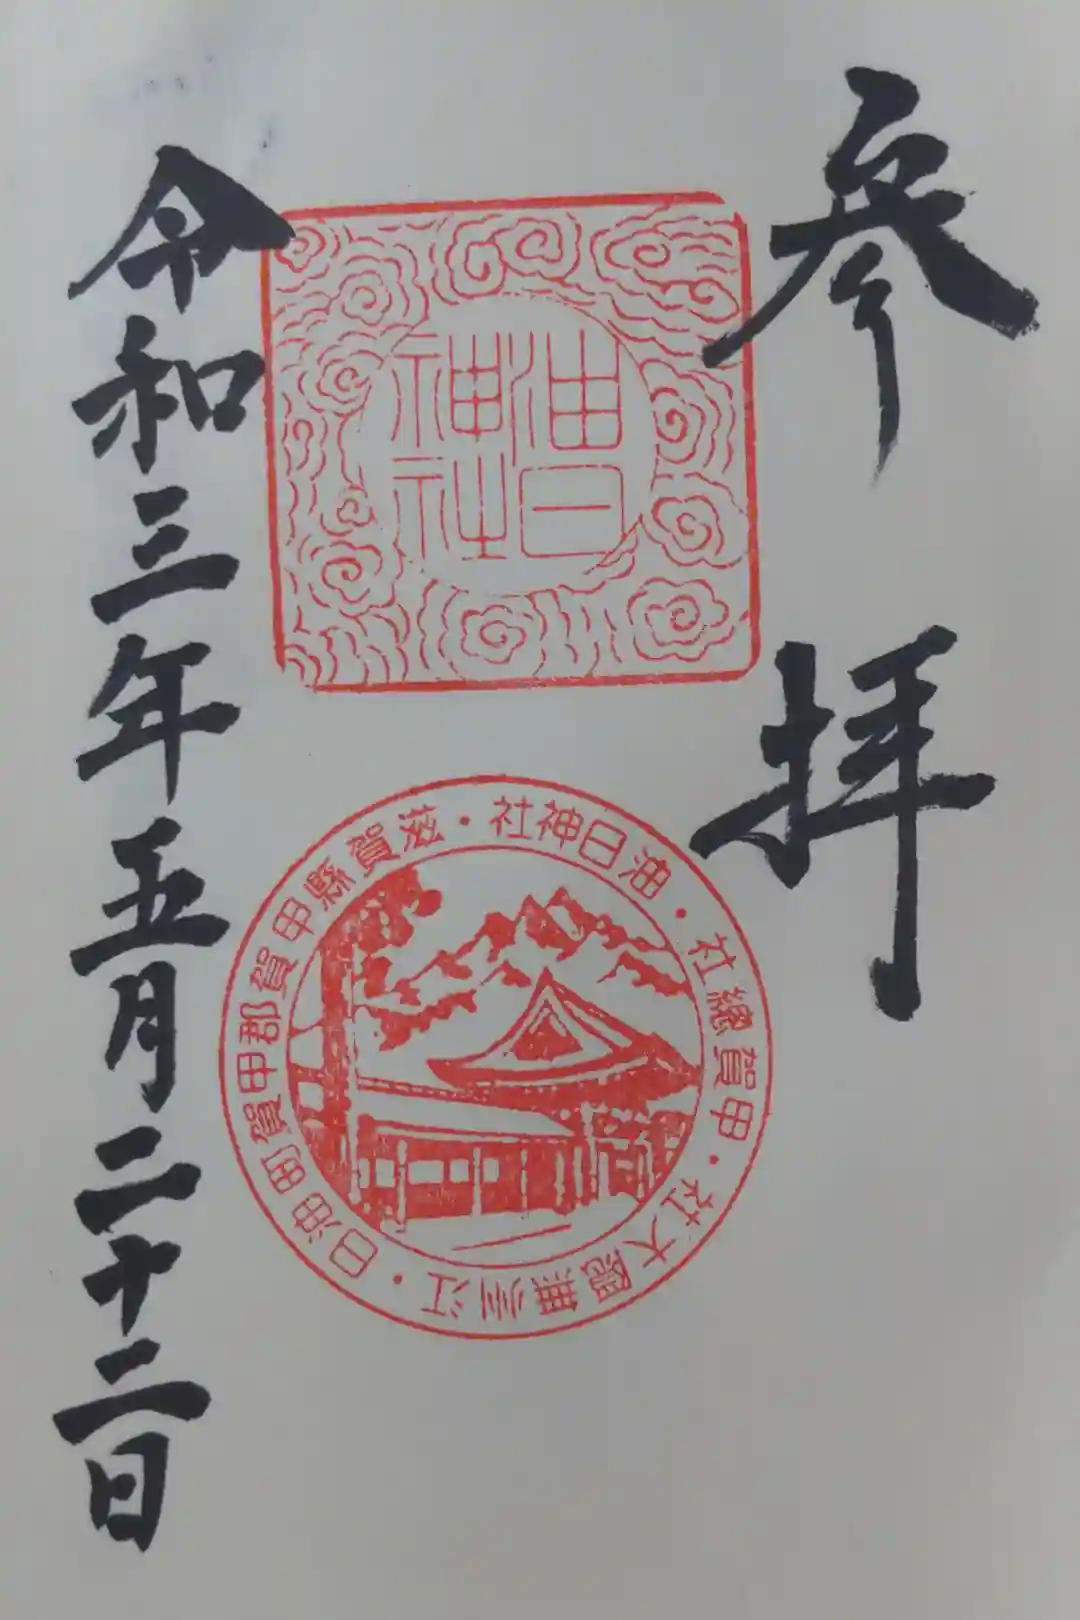 参拝
油日
神社
油日神社・滋賀縣甲賀郡甲賀町油日・江州無隈大社・甲賀總社・
令和三年五月二十二日